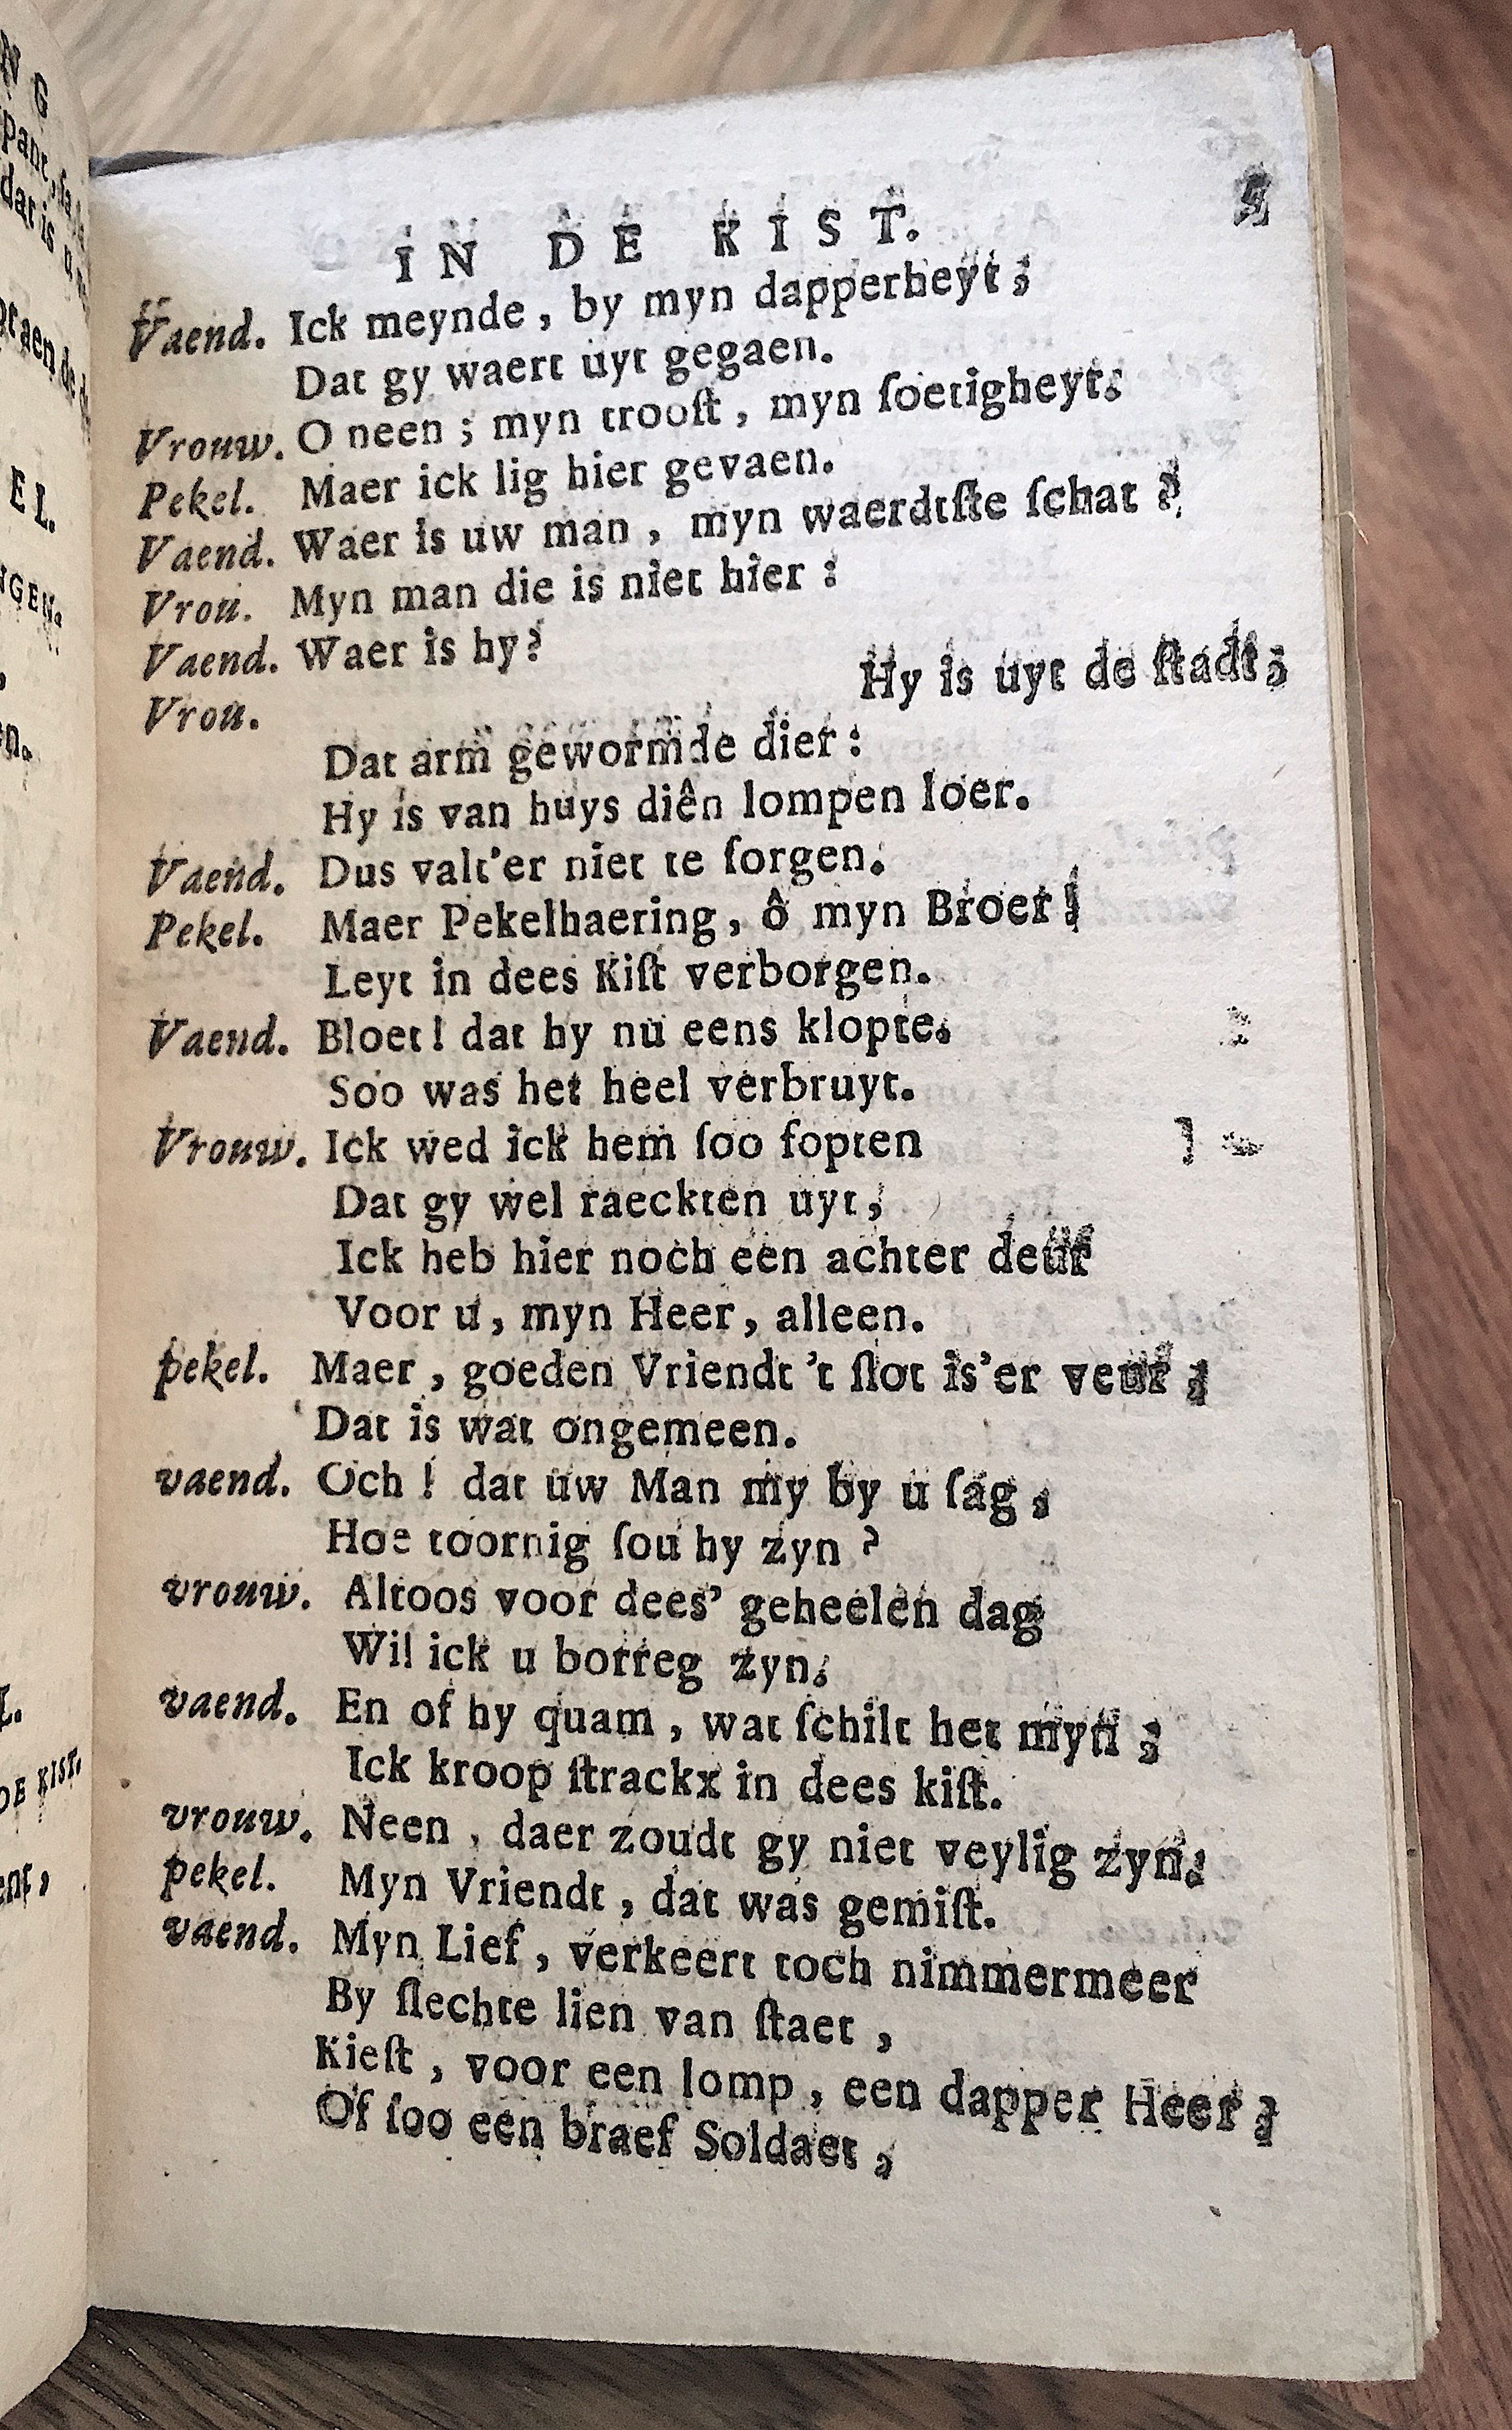 IN DE KIST. 5
Vaend. Ick meynde, by myn dapperheyt;
Dat gy waert uyt gegaen.
Vrouw. O neen; myn trooſt, myn ſoetigheyt;
Pekel. Maer ick lig hier gevaen.
Vaend. Waer is uw man, myn waerdtſte ſchat?
Vrou. Myn man die is niet hier:
Vaend. Waer is hy?
Vrou. Hy is uyt de ſtadt;
Dat arm gewormde dier:
Hy is van huys diên lompen loer.
Vaend. Dus valt'er niet te ſorgen.
Pekel. Maer Pekelhaering, ô myn Broer!
Leyt in dees Kiſt verborgen.
Vaend. Bloet! dat hy nu eens klopte.
Soo was het heel verbruyt.
Vrouw. Ick wed ick hem ſoo fopten
Dat gy wel raeckten uyt,
Ick heb hier noch een achter deur
Voor u, myn Heer, alleen.
pekel. Maer, goeden Vriendt 't ſlot is'er veur,
Dat is wat ongemeen.
vaend. Och! dat uw Man my by u ſag,
Hoe toornig ſou hy zyn?
vrouw. Altoos voor dees' geheelen dag
Wil ick u borreg zyn.
vaend. En of hy quam, wat ſchilt het myn;
Ick kroop ſtrackx in dees kiſt.
vrouw. Neen, daer zoudt gy niet veylig zyn.
pekel. Myn Vriendt, dat was gemiſt.
vaend. Myn Lief, verkeert toch nimmermeer
By ſlechte lien van ſtaet,
Kieſt, voor een lomp, een dapper Heer,
Of ſoo een braef Soldaet,